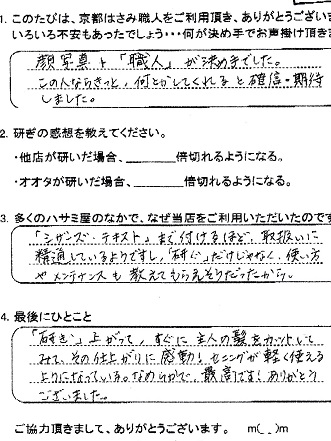 1. このたびは、京都はさみ職人をご利用頂き、ありがとうござい
いろいろ不安もあったでしょう・・・何が決め手でお声掛け頂き
顔写真と「職人」が決め手でした。
この人ならきっと、何とかしてくれると確信・期待
しました。
2. 研ぎの感想を教えてください。
・他店が研いだ場合、______倍切れるようになる。
・オオタが研いだ場合、______倍切れるようになる。
3. 多くのハサミ屋のなかで、なぜ当店をご利用いただいたのです
「シザーズ・テキスト」まで付けるほど、取扱いに
精通しているようですし、「研ぐ」だけじゃなく、使い方
やメンテナンスも教えてもらえそうだったから。
4. 最後にひとこと
「研ぎ」上がって、すぐに主人の髪をカットして
みて、その仕上がりに感動! セニングが軽く使える
ようになっている。なめらかで、最高です! ありがとう
ございました。
ご協力頂きまして、ありがとうございます。 m(_ _)m